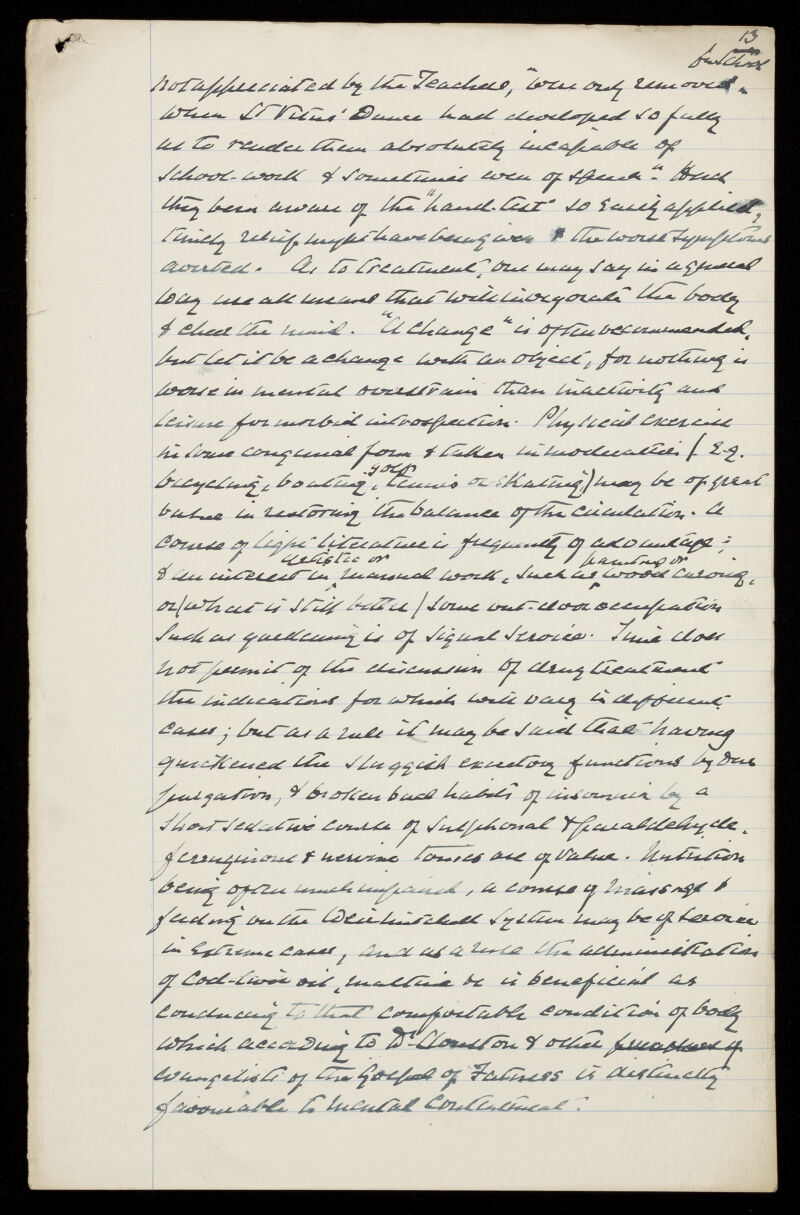 13
from School
not appreciated by the Teachers, "were only removed
when St Vitus' Dance had developed so fully
as to render them absolutely incapable of
School-work & sometimes even of speech". Had
they been aware of the "hand-test" so easily applied,
timely relief might have been given & the worse symptoms
averted. As to treatment, one may say in a general
way use all means that will invigorate the body
& cheer the mind. "A change" is often recommended,
but let it be a change with an object, for nothing is
worse in mental overstrain than inactivity and
leisure for morbid introspection. Physical exercise
in some congenial form & taken in moderation (E.g.
bicycling, boating, golf, tennis or skating) may be of great
value in restoring the balance of the circulation. A
course of light literature is frequently of advantage;
& an interest in artistic or manual work, such as painting or wood carving,
or (what is still better) some out-door occupation
such as gardening is of signal service. Time does
not permit of the discussion of drug treatment
the indications for which will vary in different
cases; but as a rule it may be said that having
quickened the sluggish excretory functions by due
purgation, & broken bad habits of insomnia by a
short sedative course of Sulphonal & Paraldehyde,
ferruginous & nervine tonics are of value. Nutrition
being often much impaired, a course of massage &
feeding on the Weir Mitchell System may be of service
in extreme cases, and as a rule the administration
of Cod-liver oil, maltine &c is beneficial as
conducing to that comfortable condition of body
which according to Dr Clouston & other
evangelists of the Gospel of Fatness is distinctly
favourable to mental contentment.